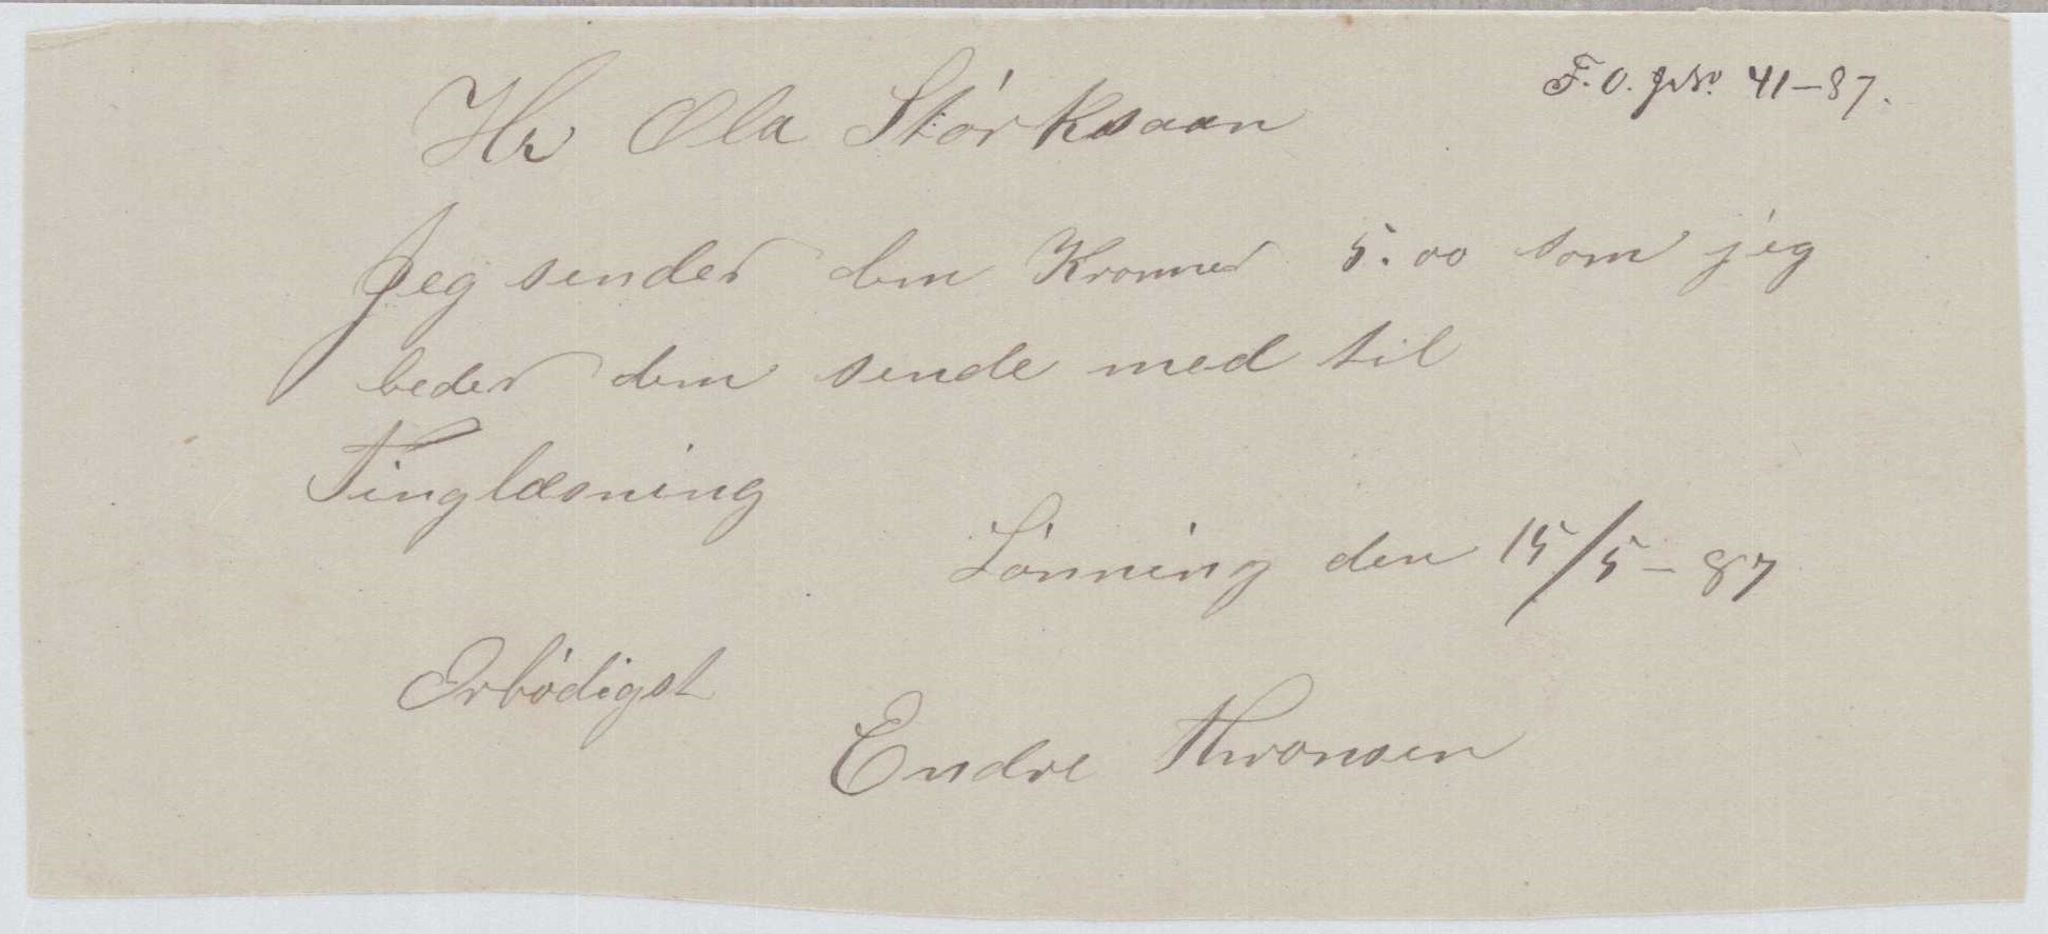 F. O. JNo. 41-87.
Hr Ola Størksaan
Jeg sender dem Kroner 5.00 som jeg
beder dem sende med til
Tinglæsning
Lønning den 15/5-87
Ærbødigst
Endre Thronsen